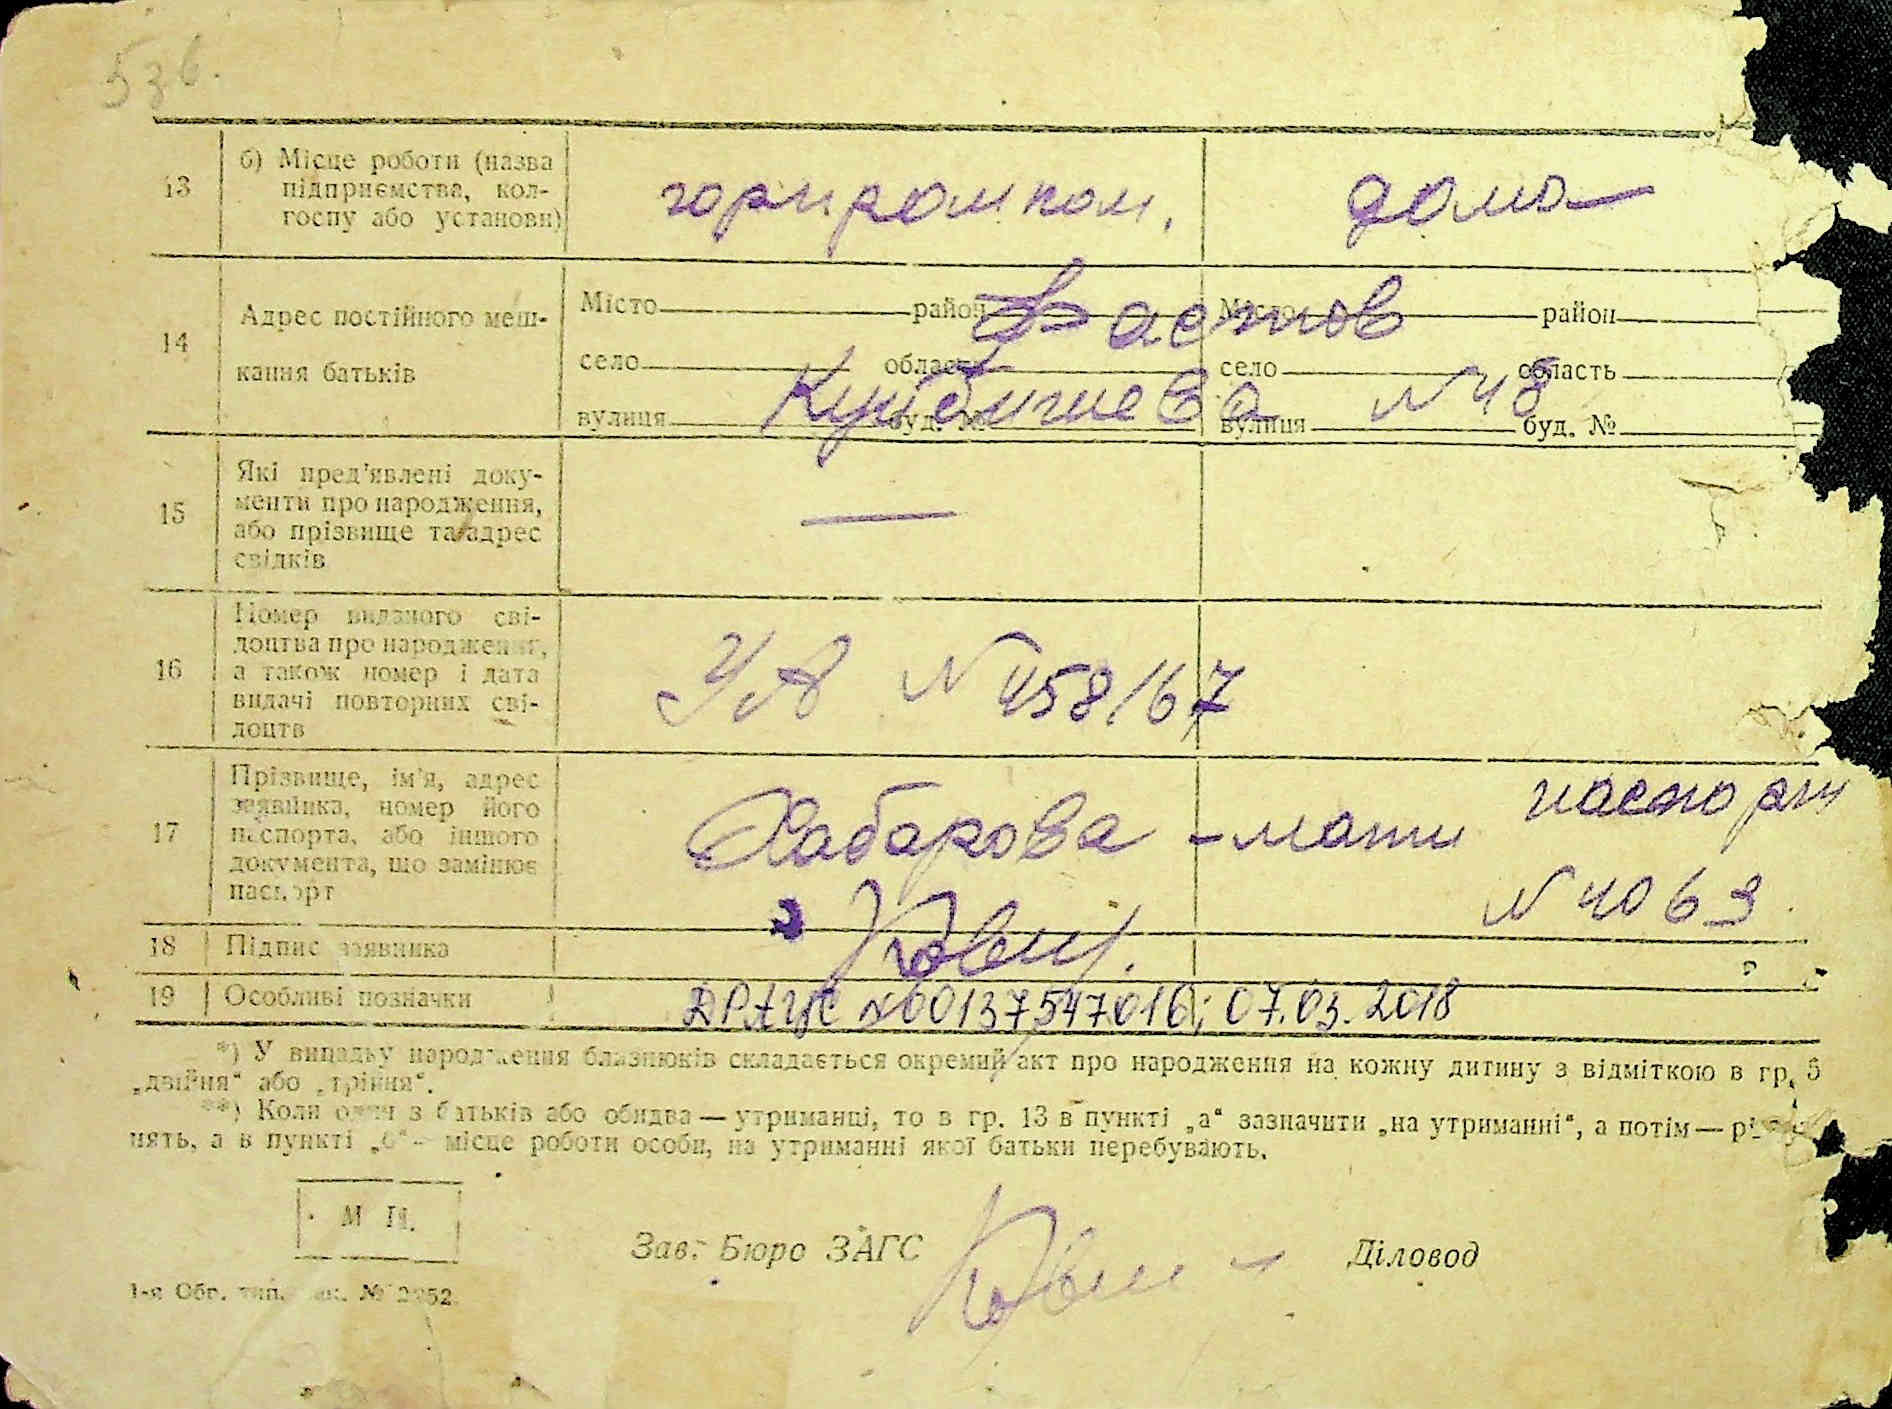 536.
13
б) Місце роботи (назва
підприємства, кол-
госпу або установи)
горпромком.
дома
14
Адрес постійного меш-
кання батьків
Місто район Місто район
Фастов
село область село область
Куйбишева №48
вулиця буд. № вулиця буд. №
15
Які пред'явлені доку-
менти про народження,
або прізвище та адрес
свідків
—
16
Номер виданого сві-
доцтва про народження,
а також номер і дата
видачі повторних сві-
доцтв
УА № 458167
17
Прізвище, ім'я, адрес
заявника, номер його
паспорта, або іншого
документа, що замінює
паспорт
Хабарова - мати паспорт
№ 4063
18 Підпис заявника
19 Особливі позначки
ДРАЦС №00137547016; 07.03.2018
*) У випадку народження близнюків складається окремий акт про народження на кожну дитину з відміткою в гр. 5
„двійня“ або „трійня“.
**) Коли один з батьків або обидва — утриманці, то в гр. 13 в пункті „а“ зазначити „на утриманні“, а потім —
нять, а в пункті „б“ - місце роботи особи, на утриманні якої батьки перебувають.
М П.
Зав. Бюро ЗАГС Діловод
1-я Обр. тип.